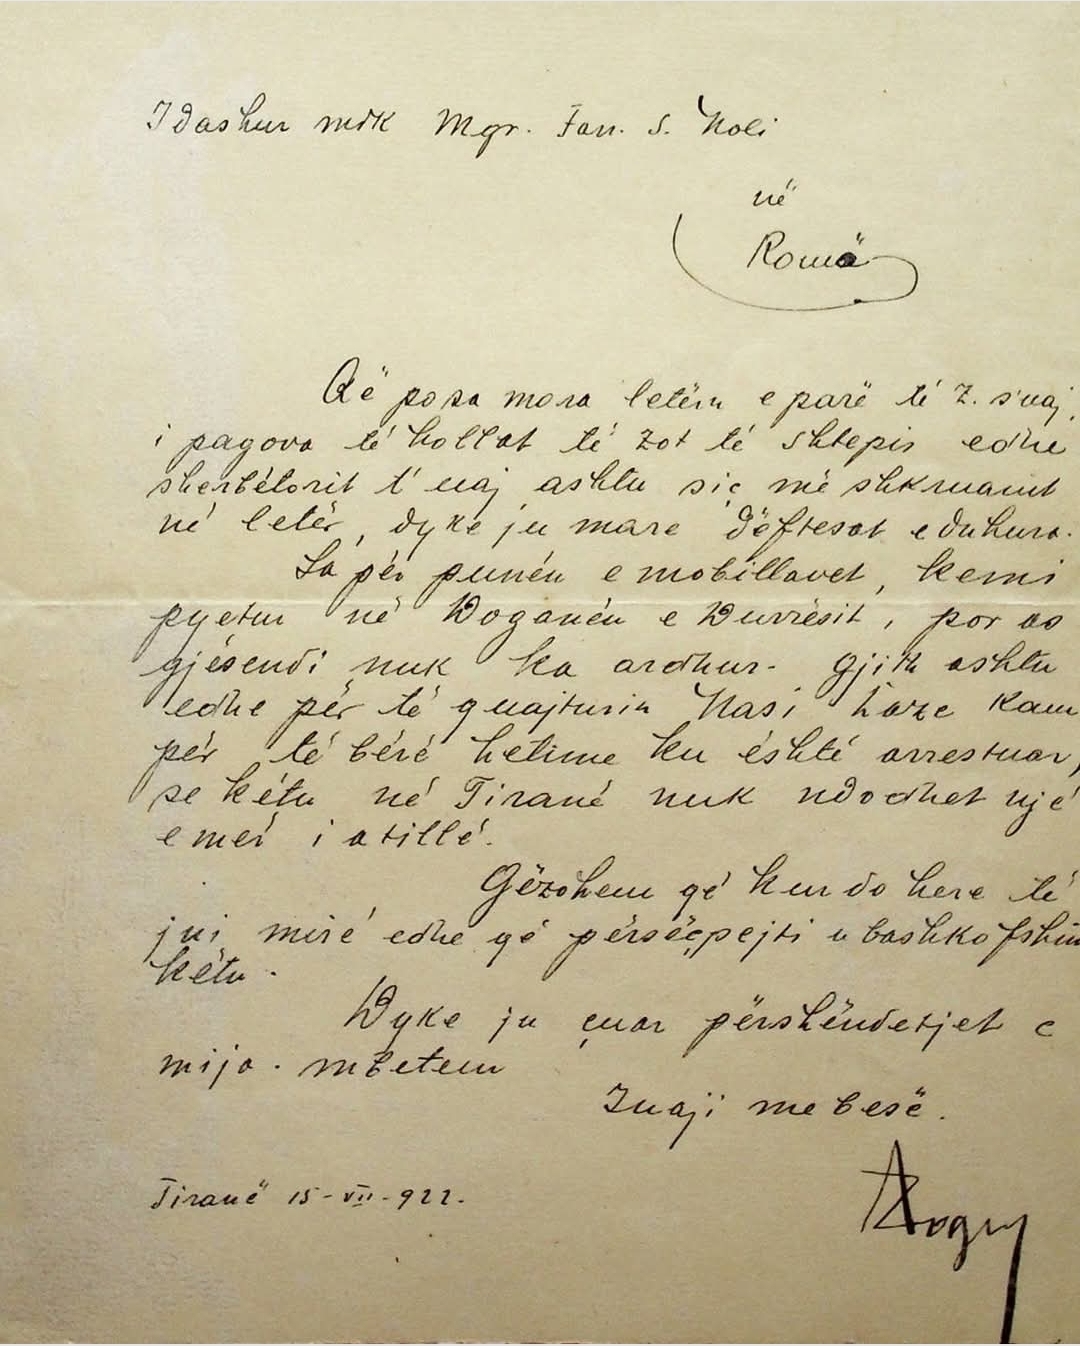 I dashur mik Mgr. Fan. S. Noli
në
Romë
Që posa mora letërn e parë të Z. s'uaj,
i pagova të hollat të zot të shtëpis edhe
sherbëtorit t'uaj ashtu siç më shkruamt
në letër, dyke ju marë dëftesat e duhura.
Sa për punën e mobillavet, kemi
pyetur në Doganën e Durrësit, por as
gjësendi nuk ka ardhur. Gjith ashtu
edhe për të quajturin Nasi kam
për të bërë hetime ku është arrestuar,
se këtu në Tiranë nuk ndodhet një
emër i atillë.
Gëzohem që kur do here të
jni mirë edhe që përsëçpejti u bashkofshim
këtu.
Dyke ju çuar përshëndetjet e
mija. mbetem
Juaji me besë.
Tiranë 15-VII-922.
AZogu